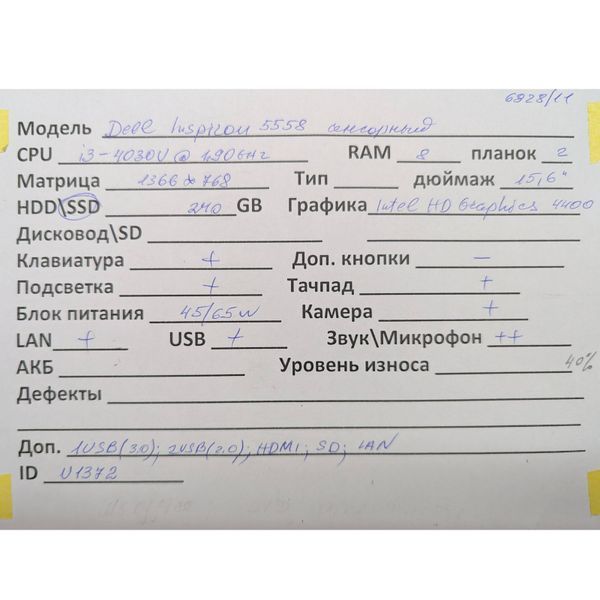 6928/11
Модель Dell Inspiron 5558 сенсорный
CPU i3-4030U @ 1.90GHz RAM 8 планок 2
Матрица 1366 x 768 Тип дюймаж 15,6"
HDD\SSD 240 GB Графика Intel HD Graphics 4400
Дисковод\SD
Клавиатура + Доп. кнопки —
Подсветка + Тачпад +
Блок питания 45/65 W Камера +
LAN + USB + Звук\Микрофон ++
АКБ Уровень износа 40%
Дефекты
Доп. 1USB(3.0); 2USB(2.0); HDMI; SD; LAN
ID U1372